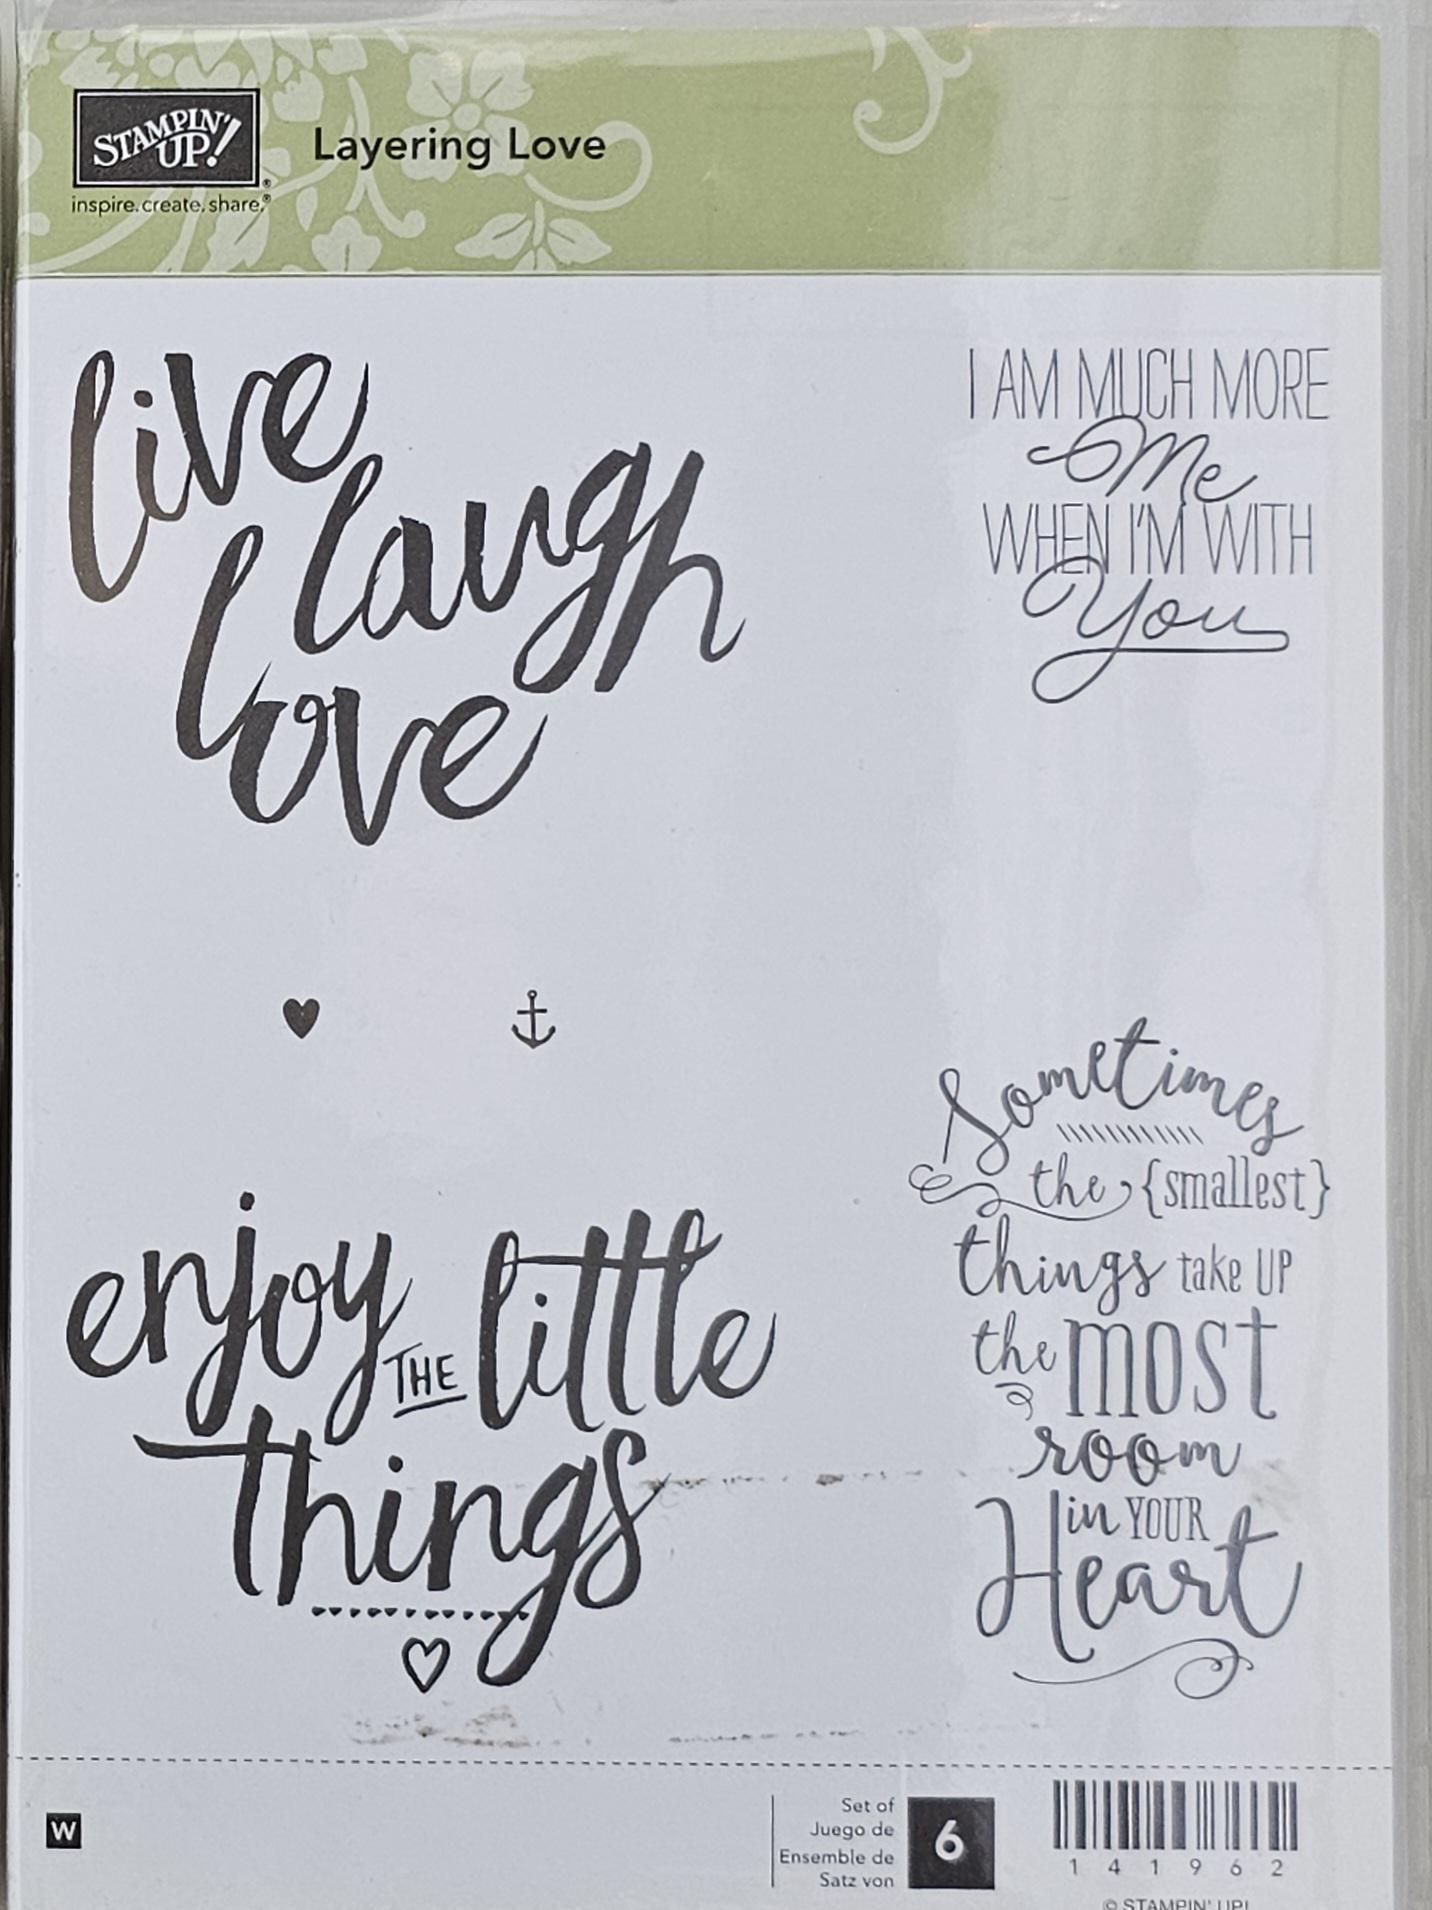 STAMPIN' UP!®
inspire.create.share.®
Layering Love
live
laugh
love
I AM MUCH MORE
Me
WHEN I'M WITH
You
enjoy
THE little
things
Sometimes
the {smallest}
things take UP
the most
room
in YOUR
Heart
W
Set of
Juego de
Ensemble de
Satz von
6
1 4 1 9 6 2
© STAMPIN' UP!